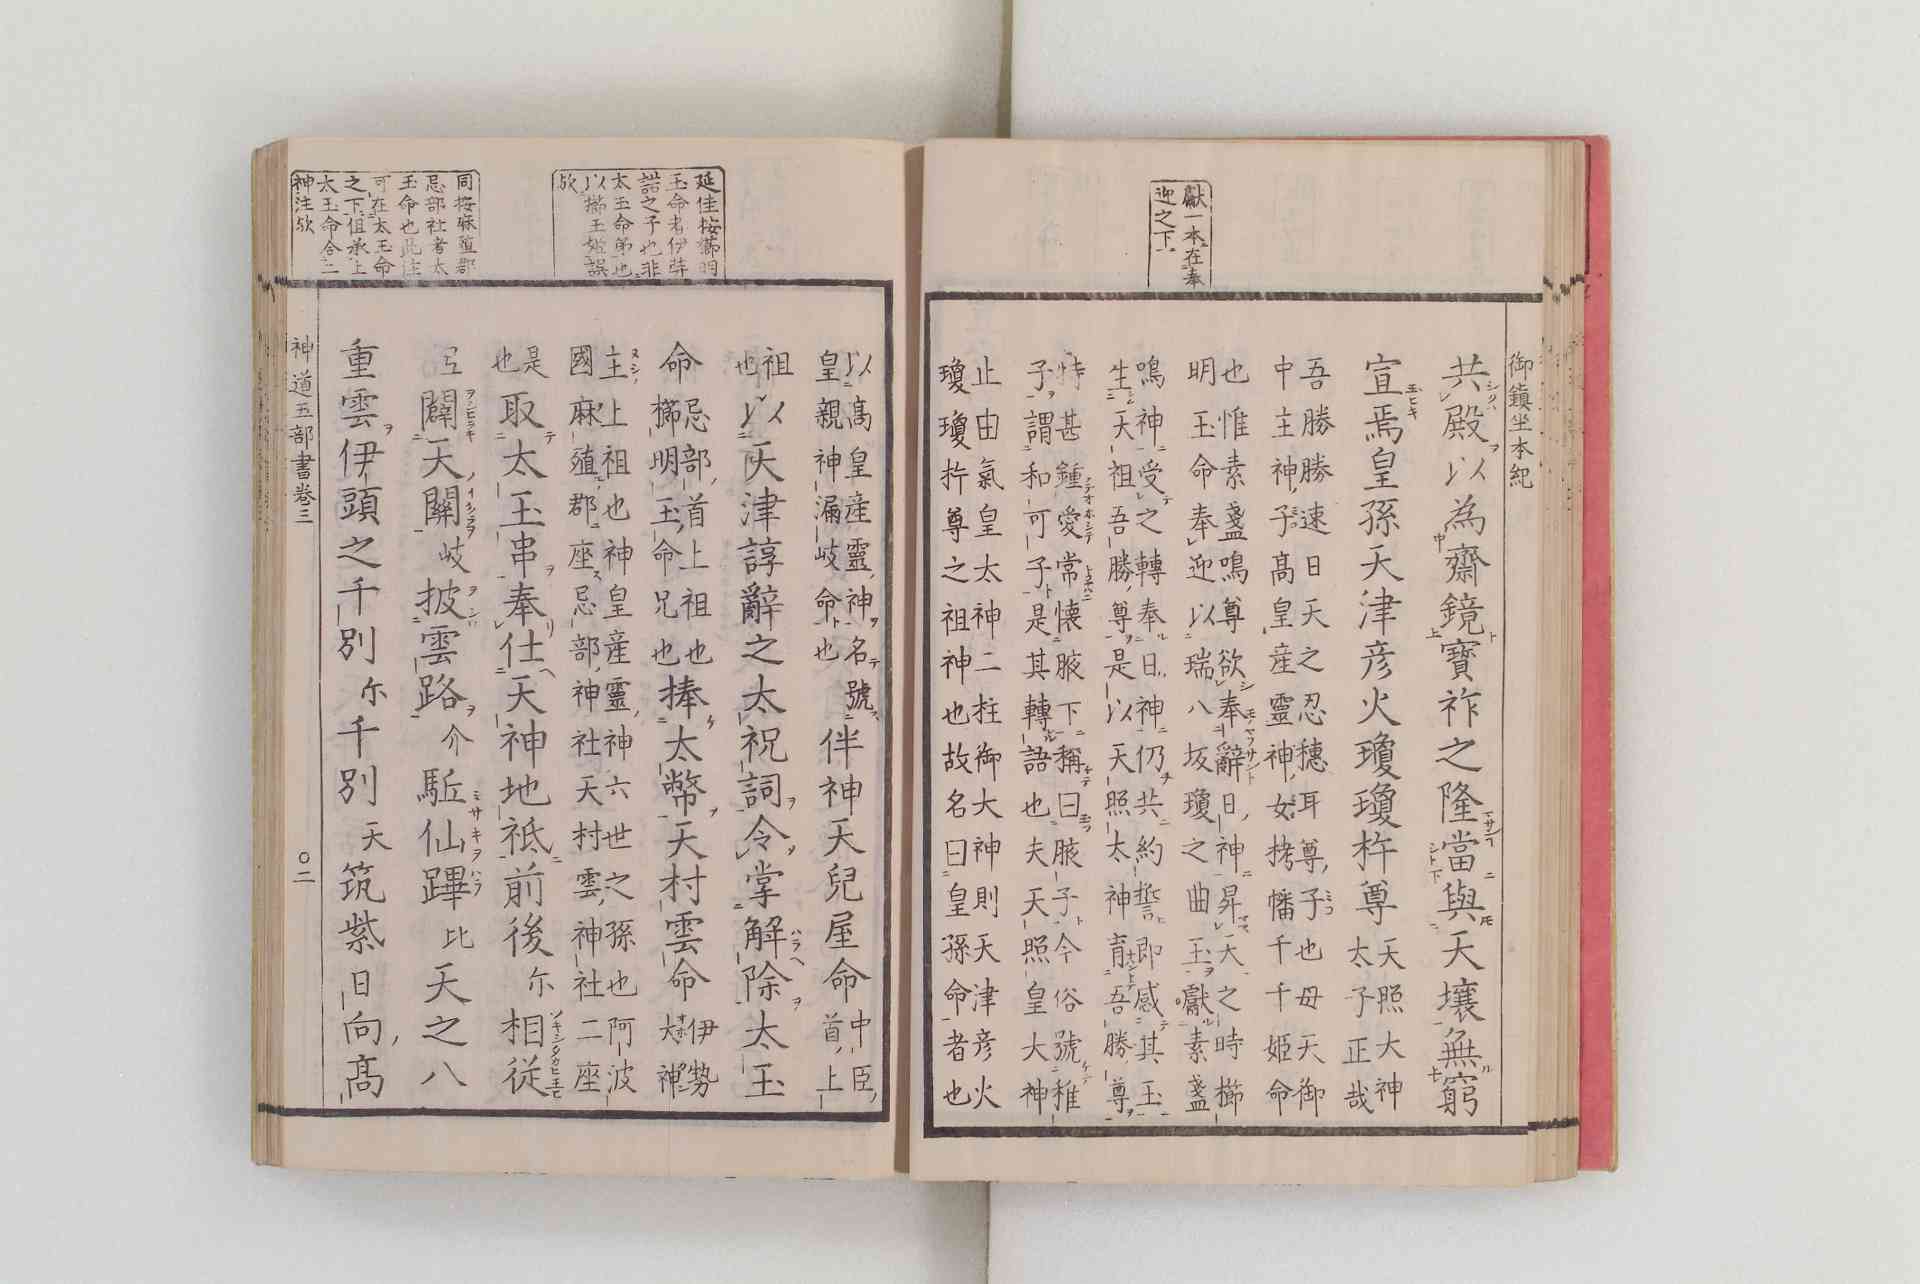 御鎮坐本紀
獻一本在奉
迎之下
共殿以為齋鏡寶祚之隆當與天壤無窮
宣焉皇孫天津彦火瓊瓊杵尊
天照大神
太子正哉
吾勝勝速日天之忍穗耳尊子也母天御
中主神子高皇産靈神女栲幡千千姫命
也惟素盞鳴尊欲奉辭日神昇天之時櫛
明玉命奉迎以瑞八坂瓊之曲玉獻素盞
鳴神受之轉奉日神仍共約誓即感其玉
生天祖吾勝尊是以天照太神育吾勝尊
特甚鍾愛常懷腋下稱曰腋子今俗號稚
子謂和可子是其轉語也夫天照皇大神
止由氣皇太神二柱御大神則天津彦火
瓊瓊杵尊之祖神也故名曰皇孫命者也
延佳按櫛明
玉命者伊弉
諾之子也非
太玉命弟也
以櫛玉姫誤
欤
同按麻殖郡
忌部社者太
玉命也此注
可在太玉命
之下但承上
太玉命合二
神注欤
以高皇産靈神名號
皇親神漏岐命也
伴神天兒屋命
中臣
首上
祖
也
以天津諄辭之太祝詞令掌解除太玉
命
忌部首上祖也
櫛明玉命兄也
捧太幣天村雲命
伊勢
大神
主上祖也神皇産靈神六世之孫也阿波
國麻殖郡座忌部神社天村雲神社二座
是
也
取太玉串奉仕天神地祇前後尓相從
弖闢天關岐披雲路介駈仙蹕比天之八
重雲伊頭之千別尓千別天筑紫日向高
神道五部書卷三
〇二